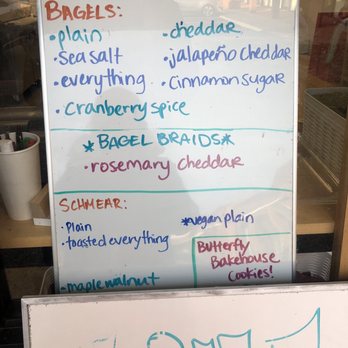 BAGELS:
•plain •cheddar
•sea salt •jalapeño cheddar
•everything •cinnamon sugar
•cranberry spice
*BAGEL BRAIDS*
•rosemary cheddar
SCHMEAR:
•Plain *vegan plain
•toasted everything
•maple walnut
Butterfly
Bakehouse
Cookies!